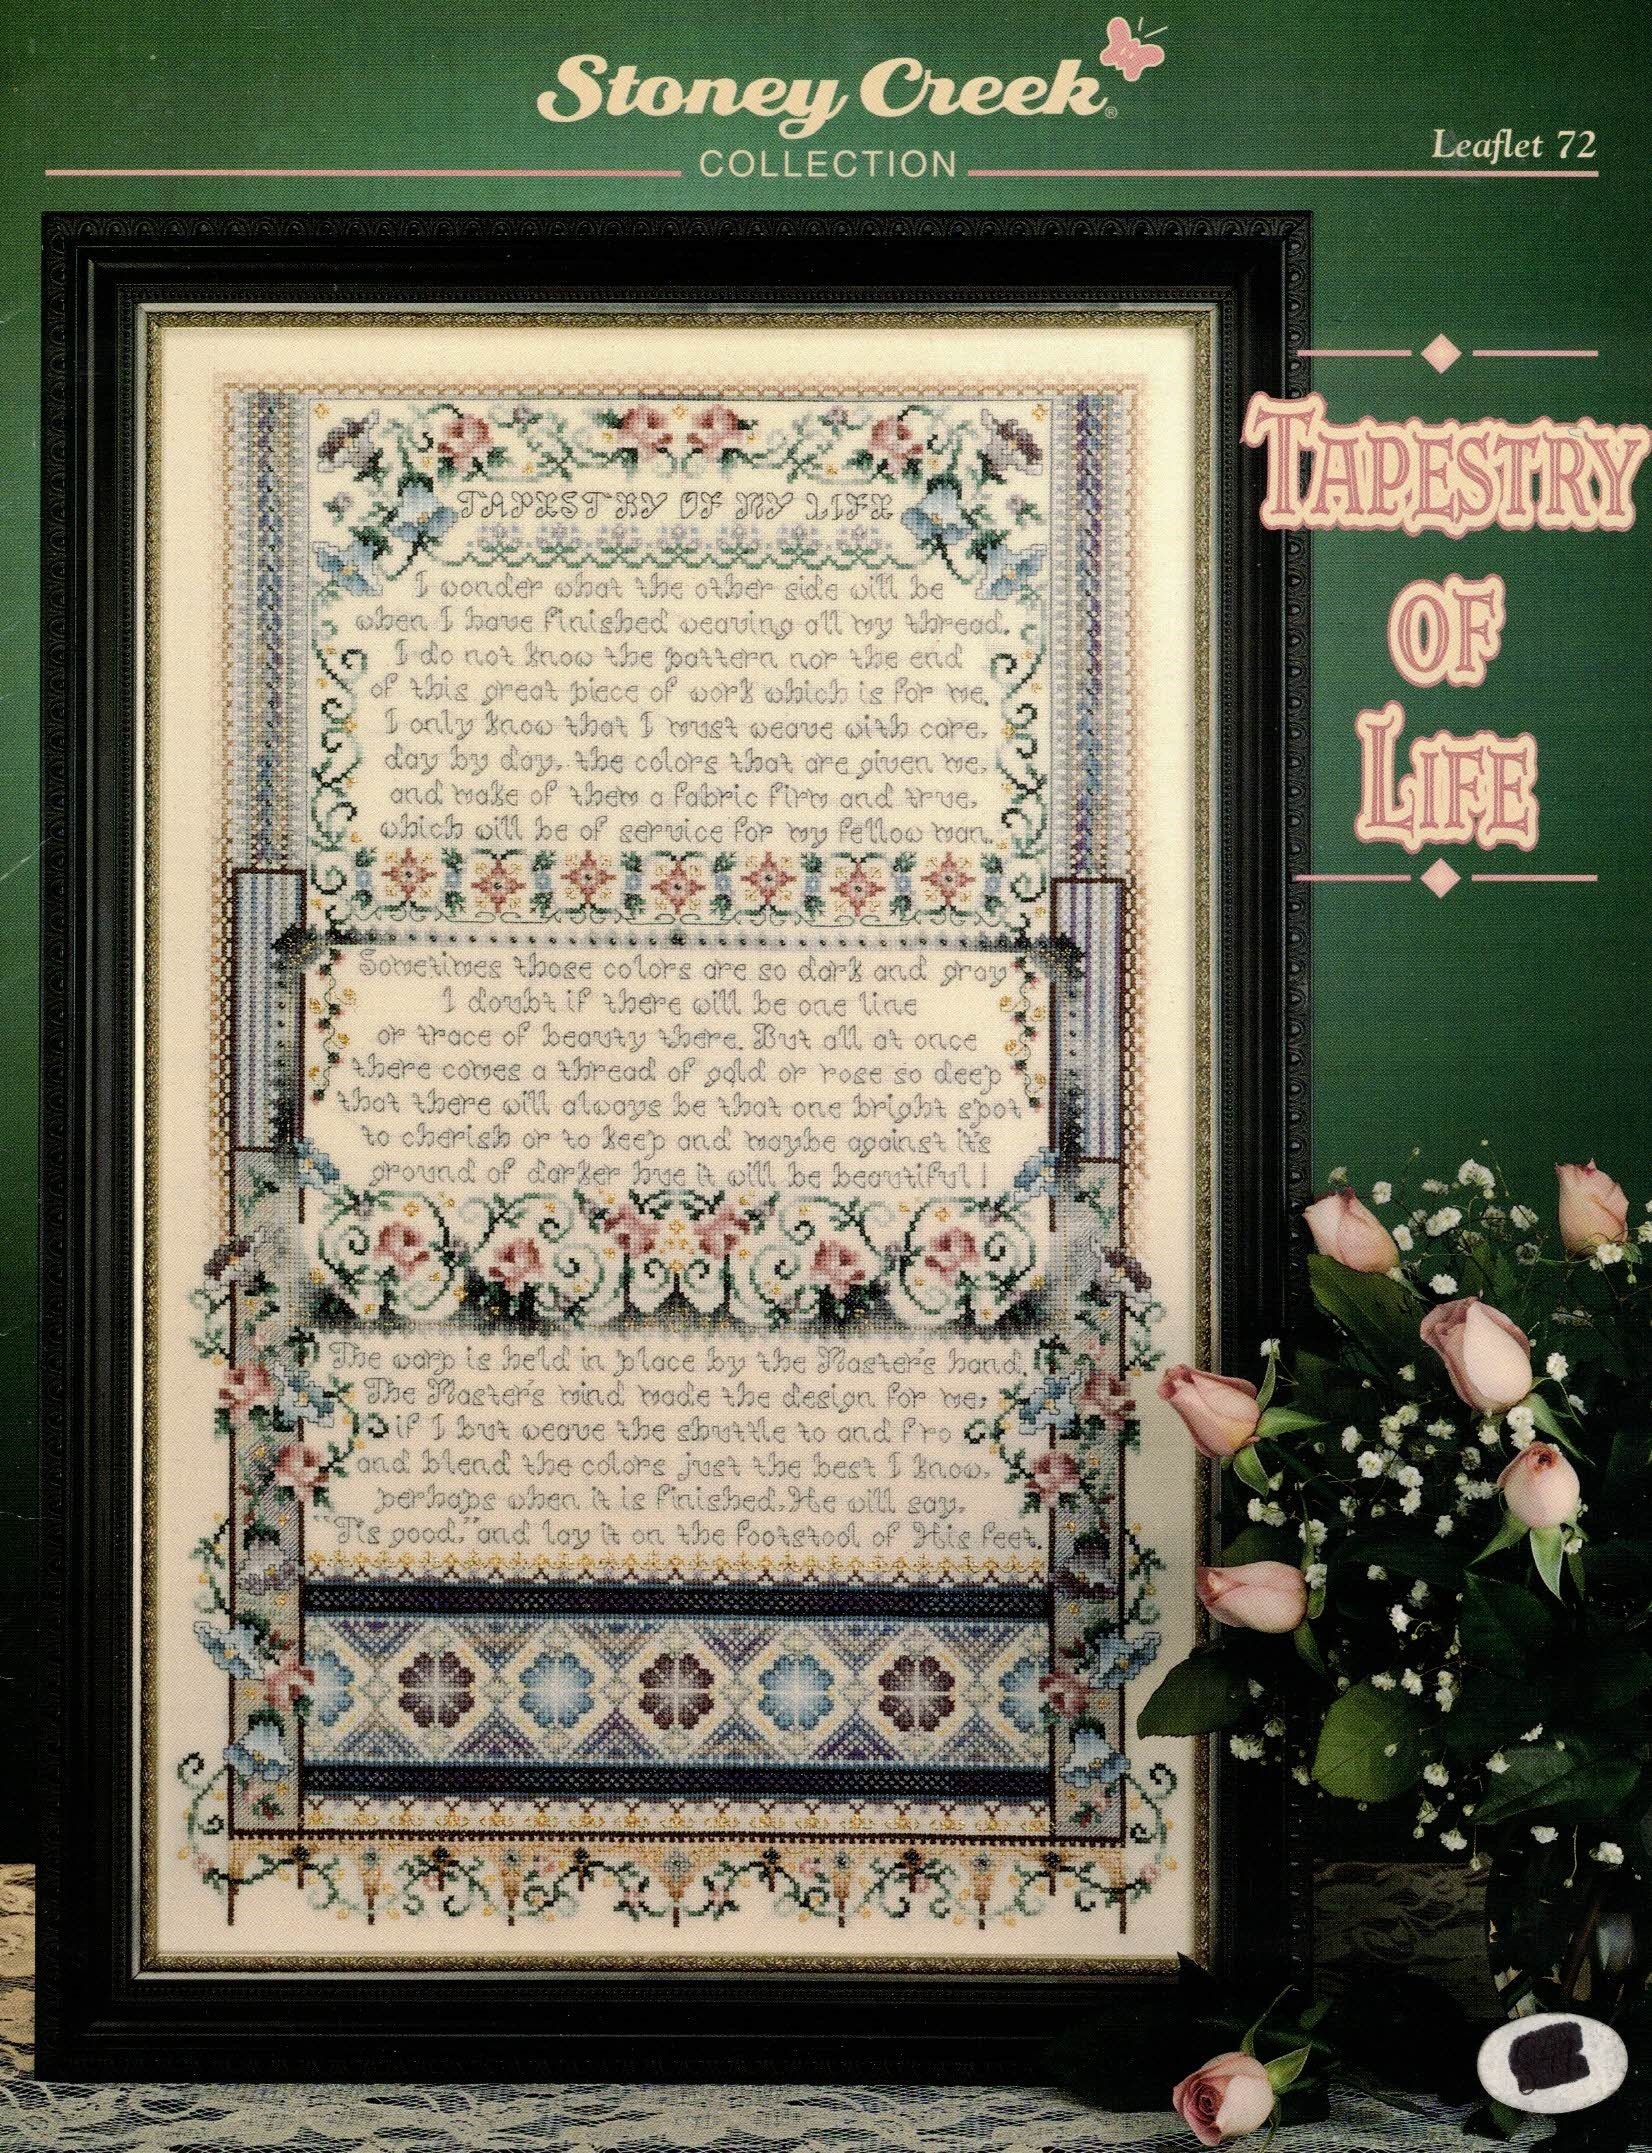 Stoney Creek®
COLLECTION
Leaflet 72
TAPESTRY
OF
LIFE
TAPESTRY OF MY LIFE
I wonder what the other side will be
when I have finished weaving all my thread.
I do not know the pattern nor the end
of this great piece of work which is for me.
I only know that I must weave with care,
day by day, the colors that are given me,
and make of them a fabric firm and true,
which will be of service for my fellow man.
Sometimes those colors are so dark and gray
I doubt if there will be one line
or trace of beauty there. But all at once
there comes a thread of gold or rose so deep
that there will always be that one bright spot
to cherish or to keep and maybe against it's
ground of darker hue it will be beautiful!
The warp is held in place by the Master's hand.
The Master's mind made the design for me;
if I but weave the shuttle to and fro
and blend the colors just the best I know,
perhaps when it is finished, He will say,
"'Tis good," and lay it on the footstool of His feet.